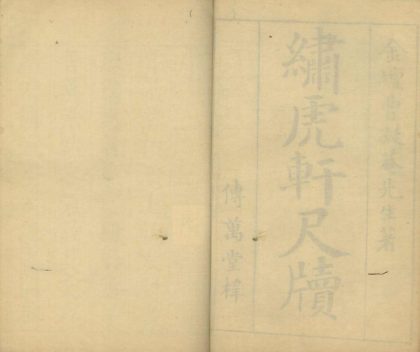 金壇曹菴先生著
繡虎軒尺牘
傳萬堂梓